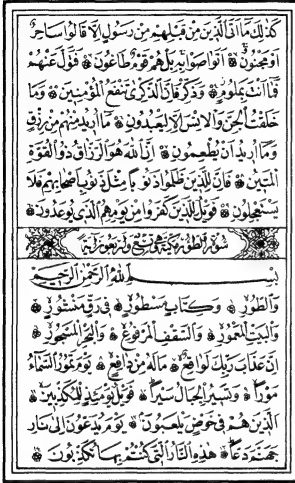 كَذَٰلِكَ مَا أَتَى الَّذِينَ مِنْ قَبْلِهِمْ مِنْ رَسُولٍ إِلَّا قَالُوا سَاحِرٌ
أَوْ مَجْنُونٌ أَتَوَاصَوْا بِهِ بَلْ هُمْ قَوْمٌ طَاغُونَ فَتَوَلَّ عَنْهُمْ
فَمَا أَنْتَ بِمَلُومٍ وَذَكِّرْ فَإِنَّ الذِّكْرَىٰ تَنْفَعُ الْمُؤْمِنِينَ وَمَا
خَلَقْتُ الْجِنَّ وَالْإِنْسَ إِلَّا لِيَعْبُدُونِ مَا أُرِيدُ مِنْهُمْ مِنْ رِزْقٍ
وَمَا أُرِيدُ أَنْ يُطْعِمُونِ إِنَّ اللَّهَ هُوَ الرَّزَّاقُ ذُو الْقُوَّةِ
الْمَتِينُ فَإِنَّ لِلَّذِينَ ظَلَمُوا ذَنُوبًا مِثْلَ ذَنُوبِ أَصْحَابِهِمْ فَلَا
يَسْتَعْجِلُونِ فَوَيْلٌ لِلَّذِينَ كَفَرُوا مِنْ يَوْمِهِمُ الَّذِي يُوعَدُونَ
سورة الطور مكية وهي تسع وأربعون آية
بِسْمِ اللَّهِ الرَّحْمَٰنِ الرَّحِيمِ
وَالطُّورِ وَكِتَابٍ مَسْطُورٍ فِي رَقٍّ مَنْشُورٍ
وَالْبَيْتِ الْمَعْمُورِ وَالسَّقْفِ الْمَرْفُوعِ وَالْبَحْرِ الْمَسْجُورِ
إِنَّ عَذَابَ رَبِّكَ لَوَاقِعٌ مَا لَهُ مِنْ دَافِعٍ يَوْمَ تَمُورُ السَّمَاءُ
مَوْرًا وَتَسِيرُ الْجِبَالُ سَيْرًا فَوَيْلٌ يَوْمَئِذٍ لِلْمُكَذِّبِينَ
الَّذِينَ هُمْ فِي خَوْضٍ يَلْعَبُونَ يَوْمَ يُدَعُّونَ إِلَىٰ نَارِ
جَهَنَّمَ دَعًّا هَٰذِهِ النَّارُ الَّتِي كُنْتُمْ بِهَا تُكَذِّبُونَ